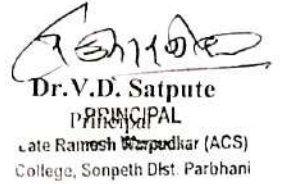 Dr.V.D. Satpute
Principal
PRINCIPAL
Late Ramesh Warpudkar (ACS)
College, Sonpeth Dist. Parbhani